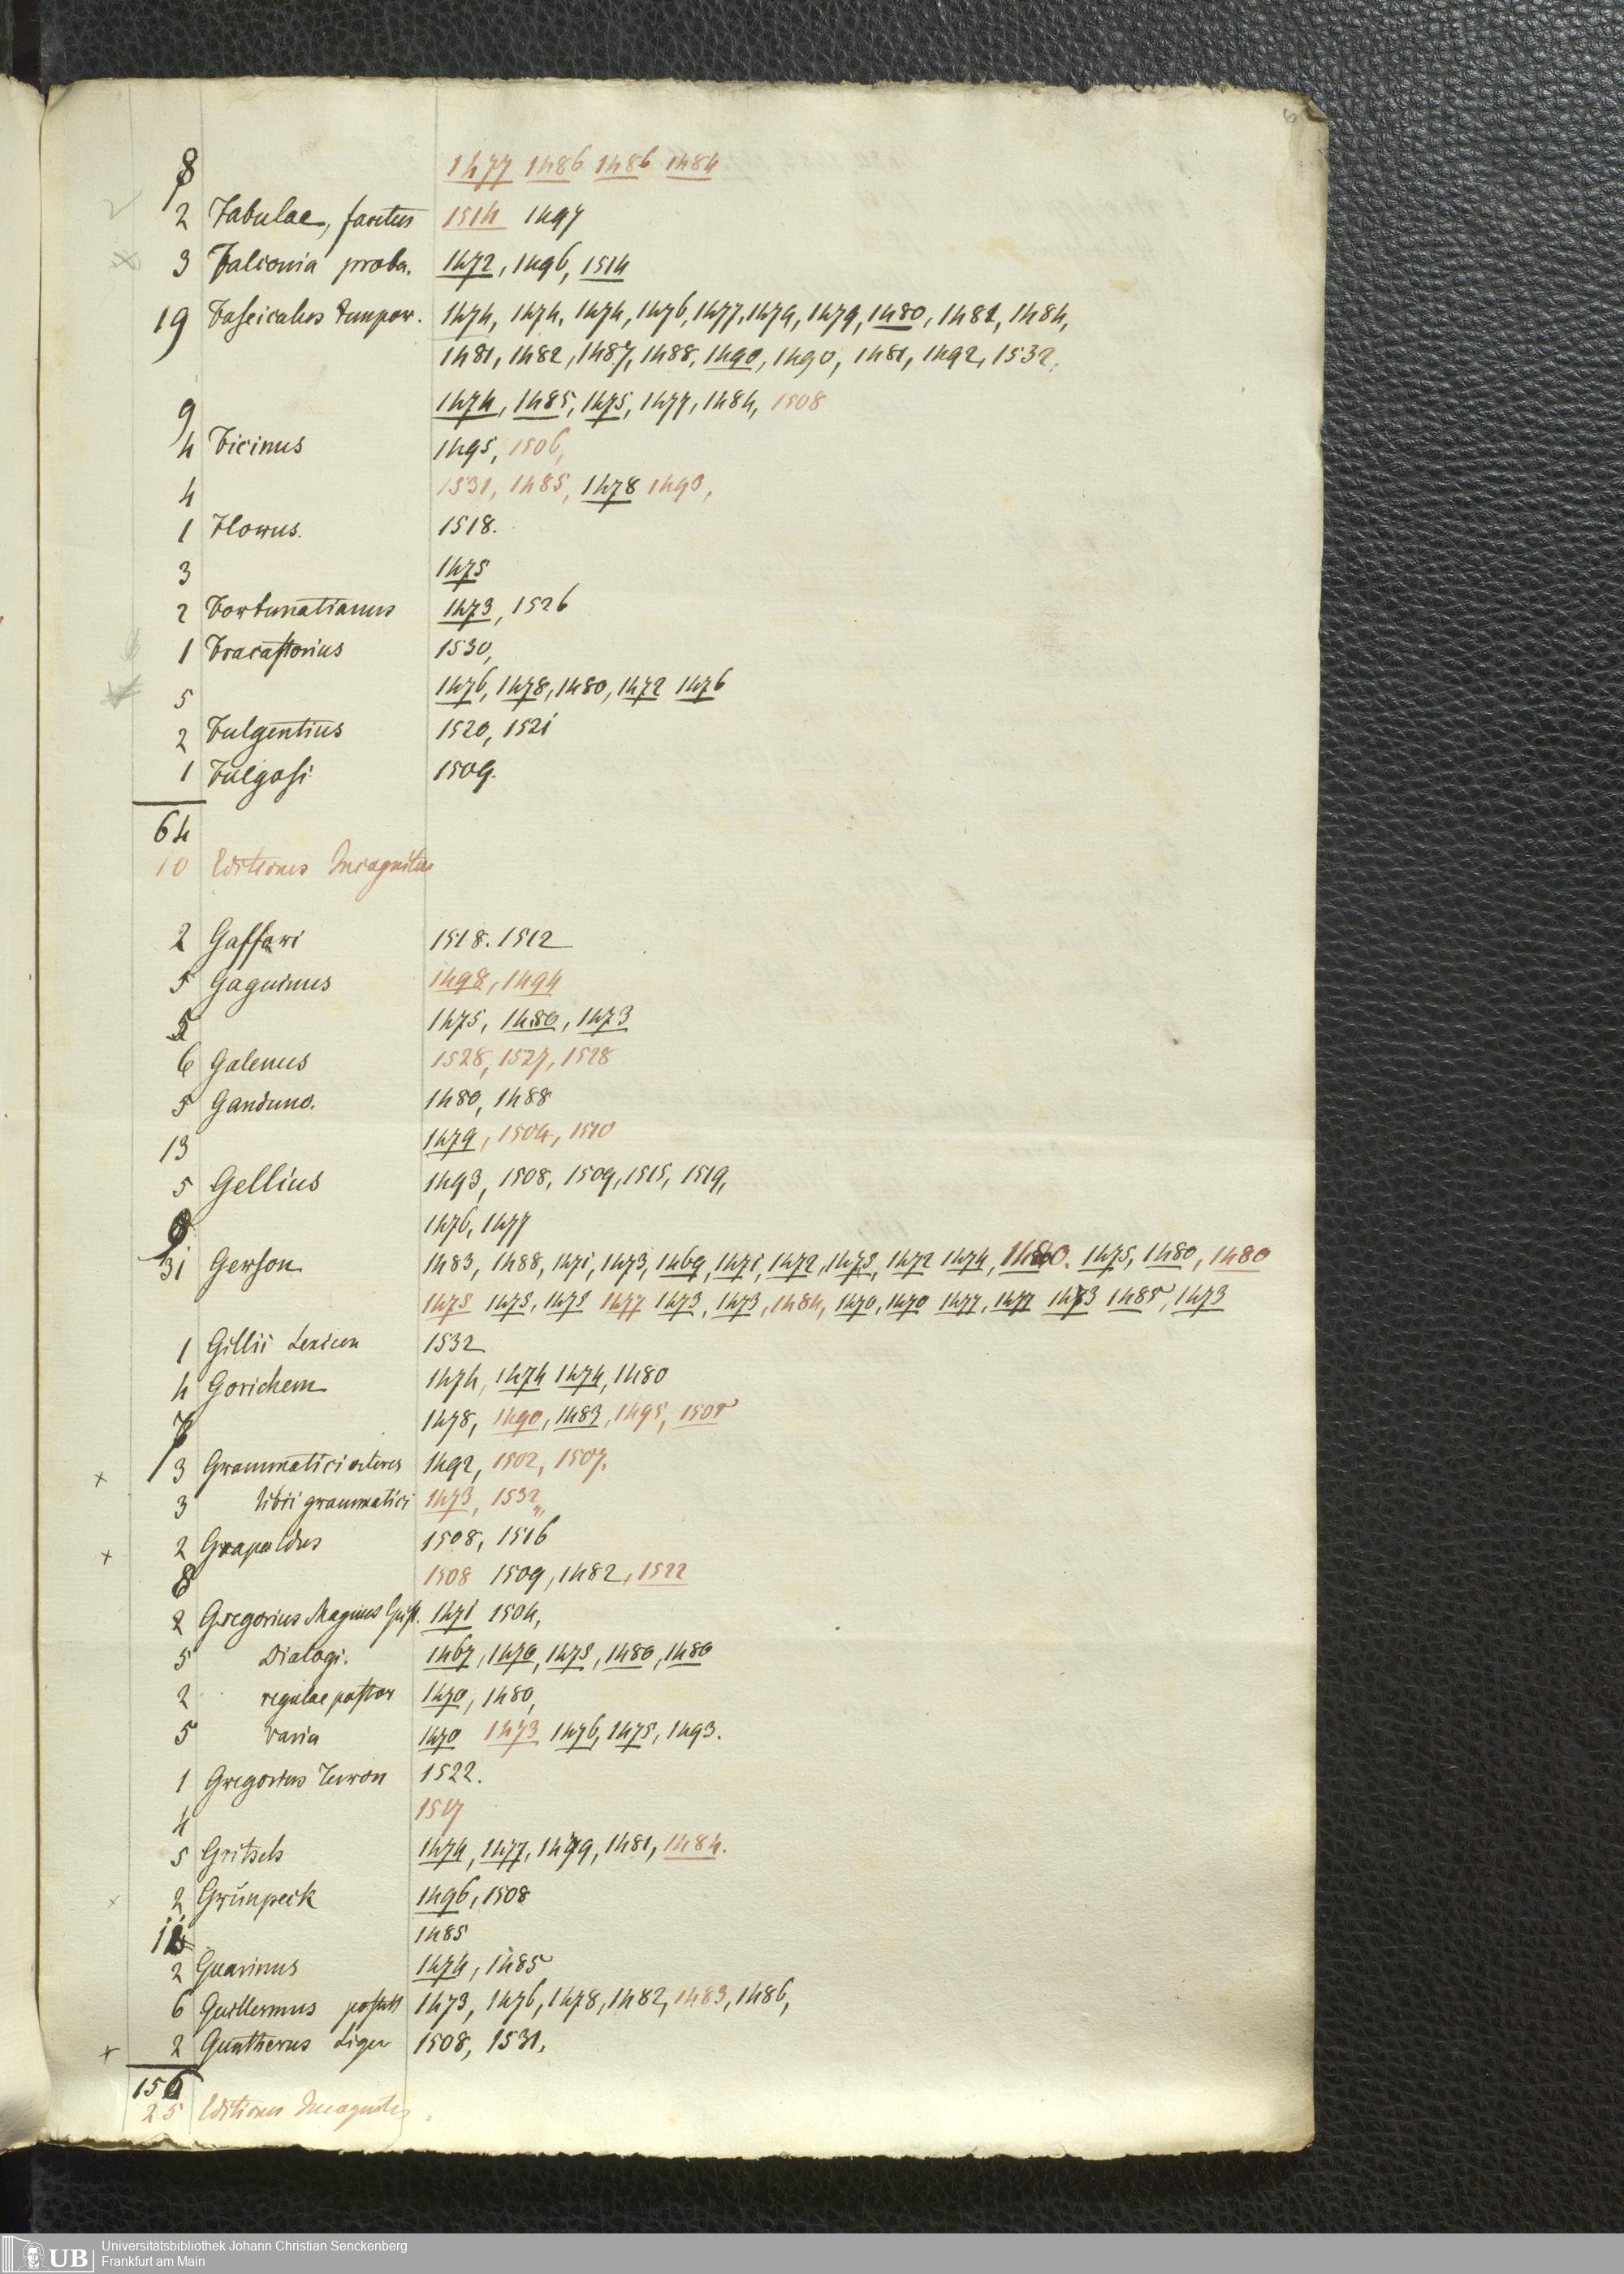 6
8 1477 1486 1486 1484
2 Fabulae, facetus 1514 1497
3 Falconia proba. 1472, 1496, 1514
19 Fasciculus tempor. 1474, 1474, 1474, 1476, 1477, 1479, 1479, 1480, 1481, 1484,
1481, 1482, 1487, 1488, 1490, 1490, 1481, 1492, 1532,
9 1474, 1485, 1475, 1477, 1484, 1508
4 Ficinus 1495, 1506,
4 1531, 1485, 1478 1493,
1 Florus. 1518.
3 1475
2 Fortunatianus 1473, 1526
1 Fracastorius 1530,
5 1476, 1478, 1480, 1472 1476
2 Fulgentius 1520, 1521
1 Fulgosi 1509.
64
10 Editiones Incognitae
2 Gaffari 1518. 1512
5 Gaguinus 1498, 1494
5 1475, 1480, 1473
6 Galenus 1528, 1527, 1528
5 Ganduno. 1480, 1488
13 1479, 1504, 1510
5 Gellius 1493, 1508, 1509, 1515, 1519,
9 1476, 1477
31 Gerson 1483, 1488, 1471, 1473, 1469, 1471, 1472, 1473, 1472 1474, 1480. 1475, 1480, 1480
1475 1475, 1475 1477 1473, 1473, 1484, 1470, 1470 1477, 1477 1473 1485, 1473
1 Gillii Lexicon 1532
4 Gorichem 1474, 1474 1474, 1480
7 1478, 1490, 1483, 1495, 1505
3 Grammatici veteres 1492, 1502, 1507.
3 libri grammatici 1473, 1532,
2 Grapaldus 1508, 1516
8 1508 1509, 1482, 1522
2 Gregorius Magnus Epist. 1471 1504,
5 Dialogi. 1467, 1470, 1473, 1480, 1480
2 regulae pastor 1470, 1480,
5 Varia 1470 1473 1476, 1475, 1493.
1 Gregorius Turon 1522.
4 1517
5 Gritsch 1474, 1477, 1479, 1481, 1484.
2 Grünpeck 1496, 1508
1485
2 Guarinus 1474, 1485
6 Guillermus postill 1473, 1476, 1478, 1482, 1483, 1486,
2 Guntherus Ligur 1508, 1531,
156
25 Editiones Incognitae
UB Universitätsbibliothek Johann Christian Senckenberg
Frankfurt am Main